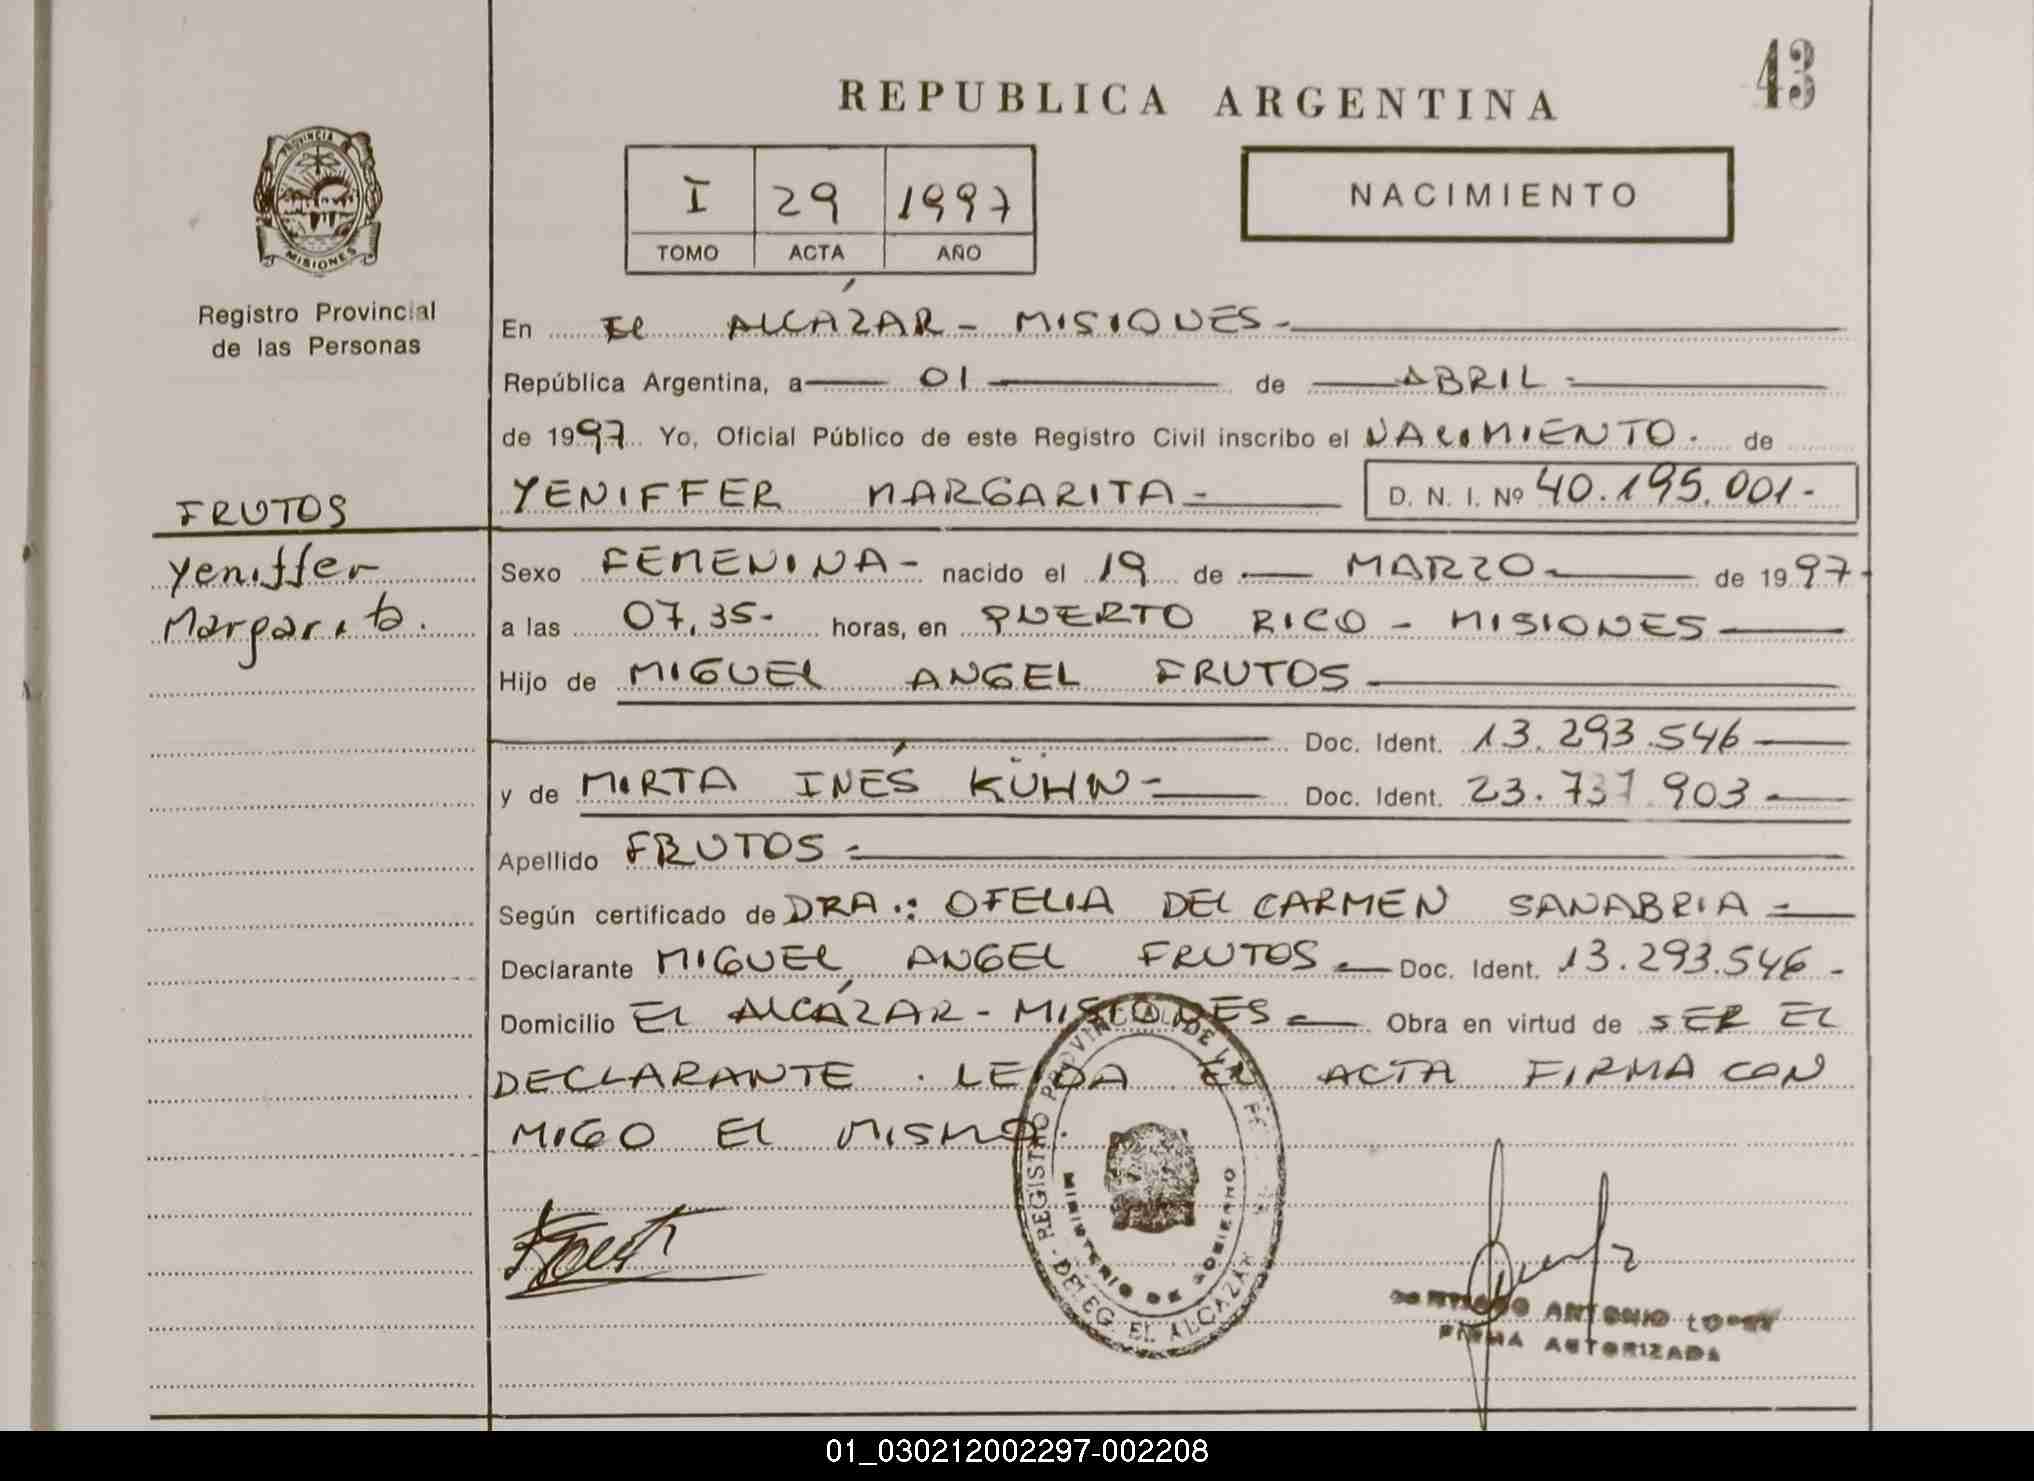 43
REPUBLICA ARGENTINA
PROVINCIA
MISIONES
Registro Provincial
de las Personas
I 29 1997
TOMO ACTA AÑO
NACIMIENTO
En El ALCÁZAR - MISIONES -
República Argentina, a 01 de ABRIL -
de 1997 Yo, Oficial Público de este Registro Civil inscribo el NACIMIENTO. de
YENIFFER MARGARITA - D. N. I. Nº 40.195.001 -
FRUTOS
Yeniffer
Margarita.
Sexo FEMENINA - nacido el 19 de MARZO de 1997-
a las 07,35- horas, en PUERTO RICO - MISIONES
Hijo de MIGUEL ANGEL FRUTOS
Doc. Ident. 13.293.546
y de MIRTA INÉS KÜHN - Doc. Ident. 23.737.903 -
Apellido FRUTOS -
Según certificado de DRA.: OFELIA DEL CARMEN SANABRIA -
Declarante MIGUEL ANGEL FRUTOS. Doc. Ident. 13.293.546 -
Domicilio EL ALCÁZAR - MISIONES Obra en virtud de SER EL
DECLARANTE . LEIDA EL ACTA FIRMA CON
MIGO EL MISMO.
REGISTRO PROVINCIAL DE
DELEG. EL ALCAZAR
MINISTERIO DE GOBIERNO
ANTONIO LOPEZ
FIRMA AUTORIZADA
01_030212002297-002208